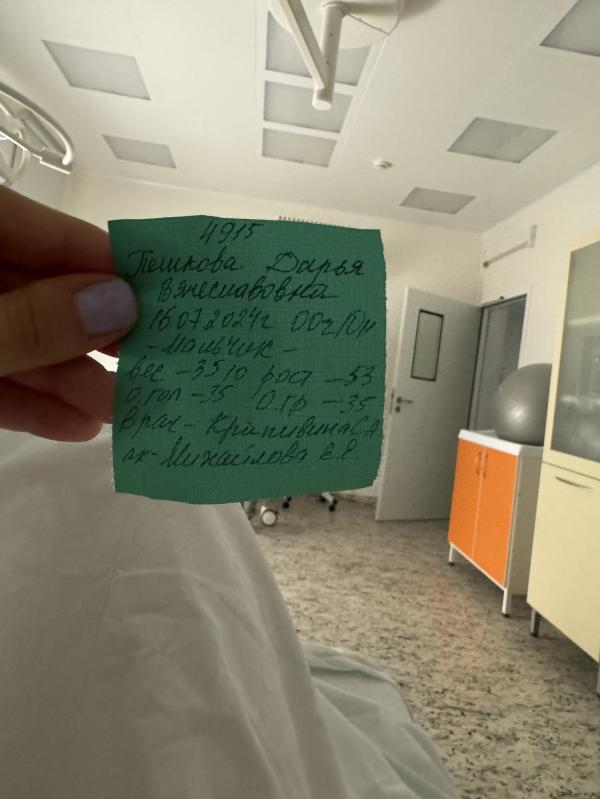 4915
Пешкова Дарья
Вячеславовна
16.07.2024г 00ч10м
- мальчик -
вес - 3510 рост - 53
о.гол - 35 о.гр - 35
Врач - Крапивина СА
ак - Михайлова Е.Е.